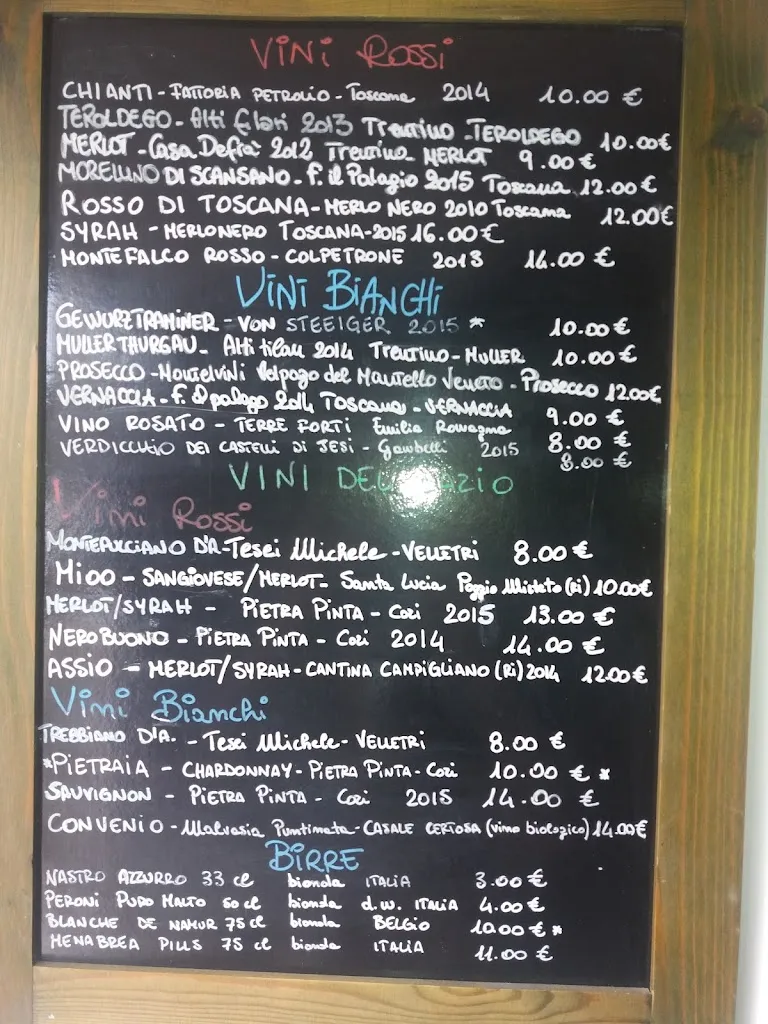 VINI ROSSI
CHIANTI - FATTORIA PETROLIO - Toscana 2014 10.00 €
TEROLDEGO - Alti filari 2013 Trentino - TEROLDEGO 10.00€
MERLOT - Casa Defrà 2012 Trentino MERLOT 9.00 €
MORELLINO DI SCANSANO - F. il Palagio 2015 Toscana 12.00 €
ROSSO DI TOSCANA - MERLO NERO 2010 Toscana 12.00€
SYRAH - MERLONERO TOSCANA - 2015 16.00 €
MONTEFALCO ROSSO - COLPETRONE 2013 14.00 €
VINI BIANCHI
GEWURZTRAMINER - VON STEEIGER 2015 * 10.00 €
MULLER THURGAU - Alti filari 2014 Trentino - MULLER 10.00 €
PROSECCO - Montelvini del Veneto - PROSECCO 12.00€
VERNACCIA - F. il palagio 2014 TOSCANA - VERNACCIA 9.00 €
VINO ROSATO - TERRE FORTI Emilia Romagna 8.00 €
VERDICCHIO DEI CASTELLI DI JESI - 2015 8.00 €
VINI DEL LAZIO
Vini Rossi
MONTEPULCIANO D'A. - Tesei Michele - VELLETRI 8.00 €
MIOO - SANGIOVESE/MERLOT - Santa Lucia Poggio Mirteto (Ri) 10.00€
MERLOT/SYRAH - PIETRA PINTA - Cori 2015 13.00 €
NERO BUONO - PIETRA PINTA - Cori 2014 14.00 €
ASSIO - MERLOT/SYRAH - CANTINA CAMPIGLIANO (Ri) 2014 12.00€
Vini Bianchi
TREBBIANO D'A. - Tesei Michele - VELLETRI 8.00 €
*PIETRAIA - CHARDONNAY - PIETRA PINTA - Cori 10.00 € *
SAUVIGNON - PIETRA PINTA - Cori 2015 14.00 €
CONVENIO - Malvasia Puntinata - CASALE CERTOSA (vino biologico) 14.00€
BIRRE
NASTRO AZZURRO 33 cl bionda ITALIA 3.00 €
PERONI PURO MALTO 50 cl bionda d.w. ITALIA 4.00 €
BLANCHE DE NAMUR 75 cl bionda BELGIO 10.00 € *
MENABREA PILLS 75 cl bionda ITALIA 11.00 €